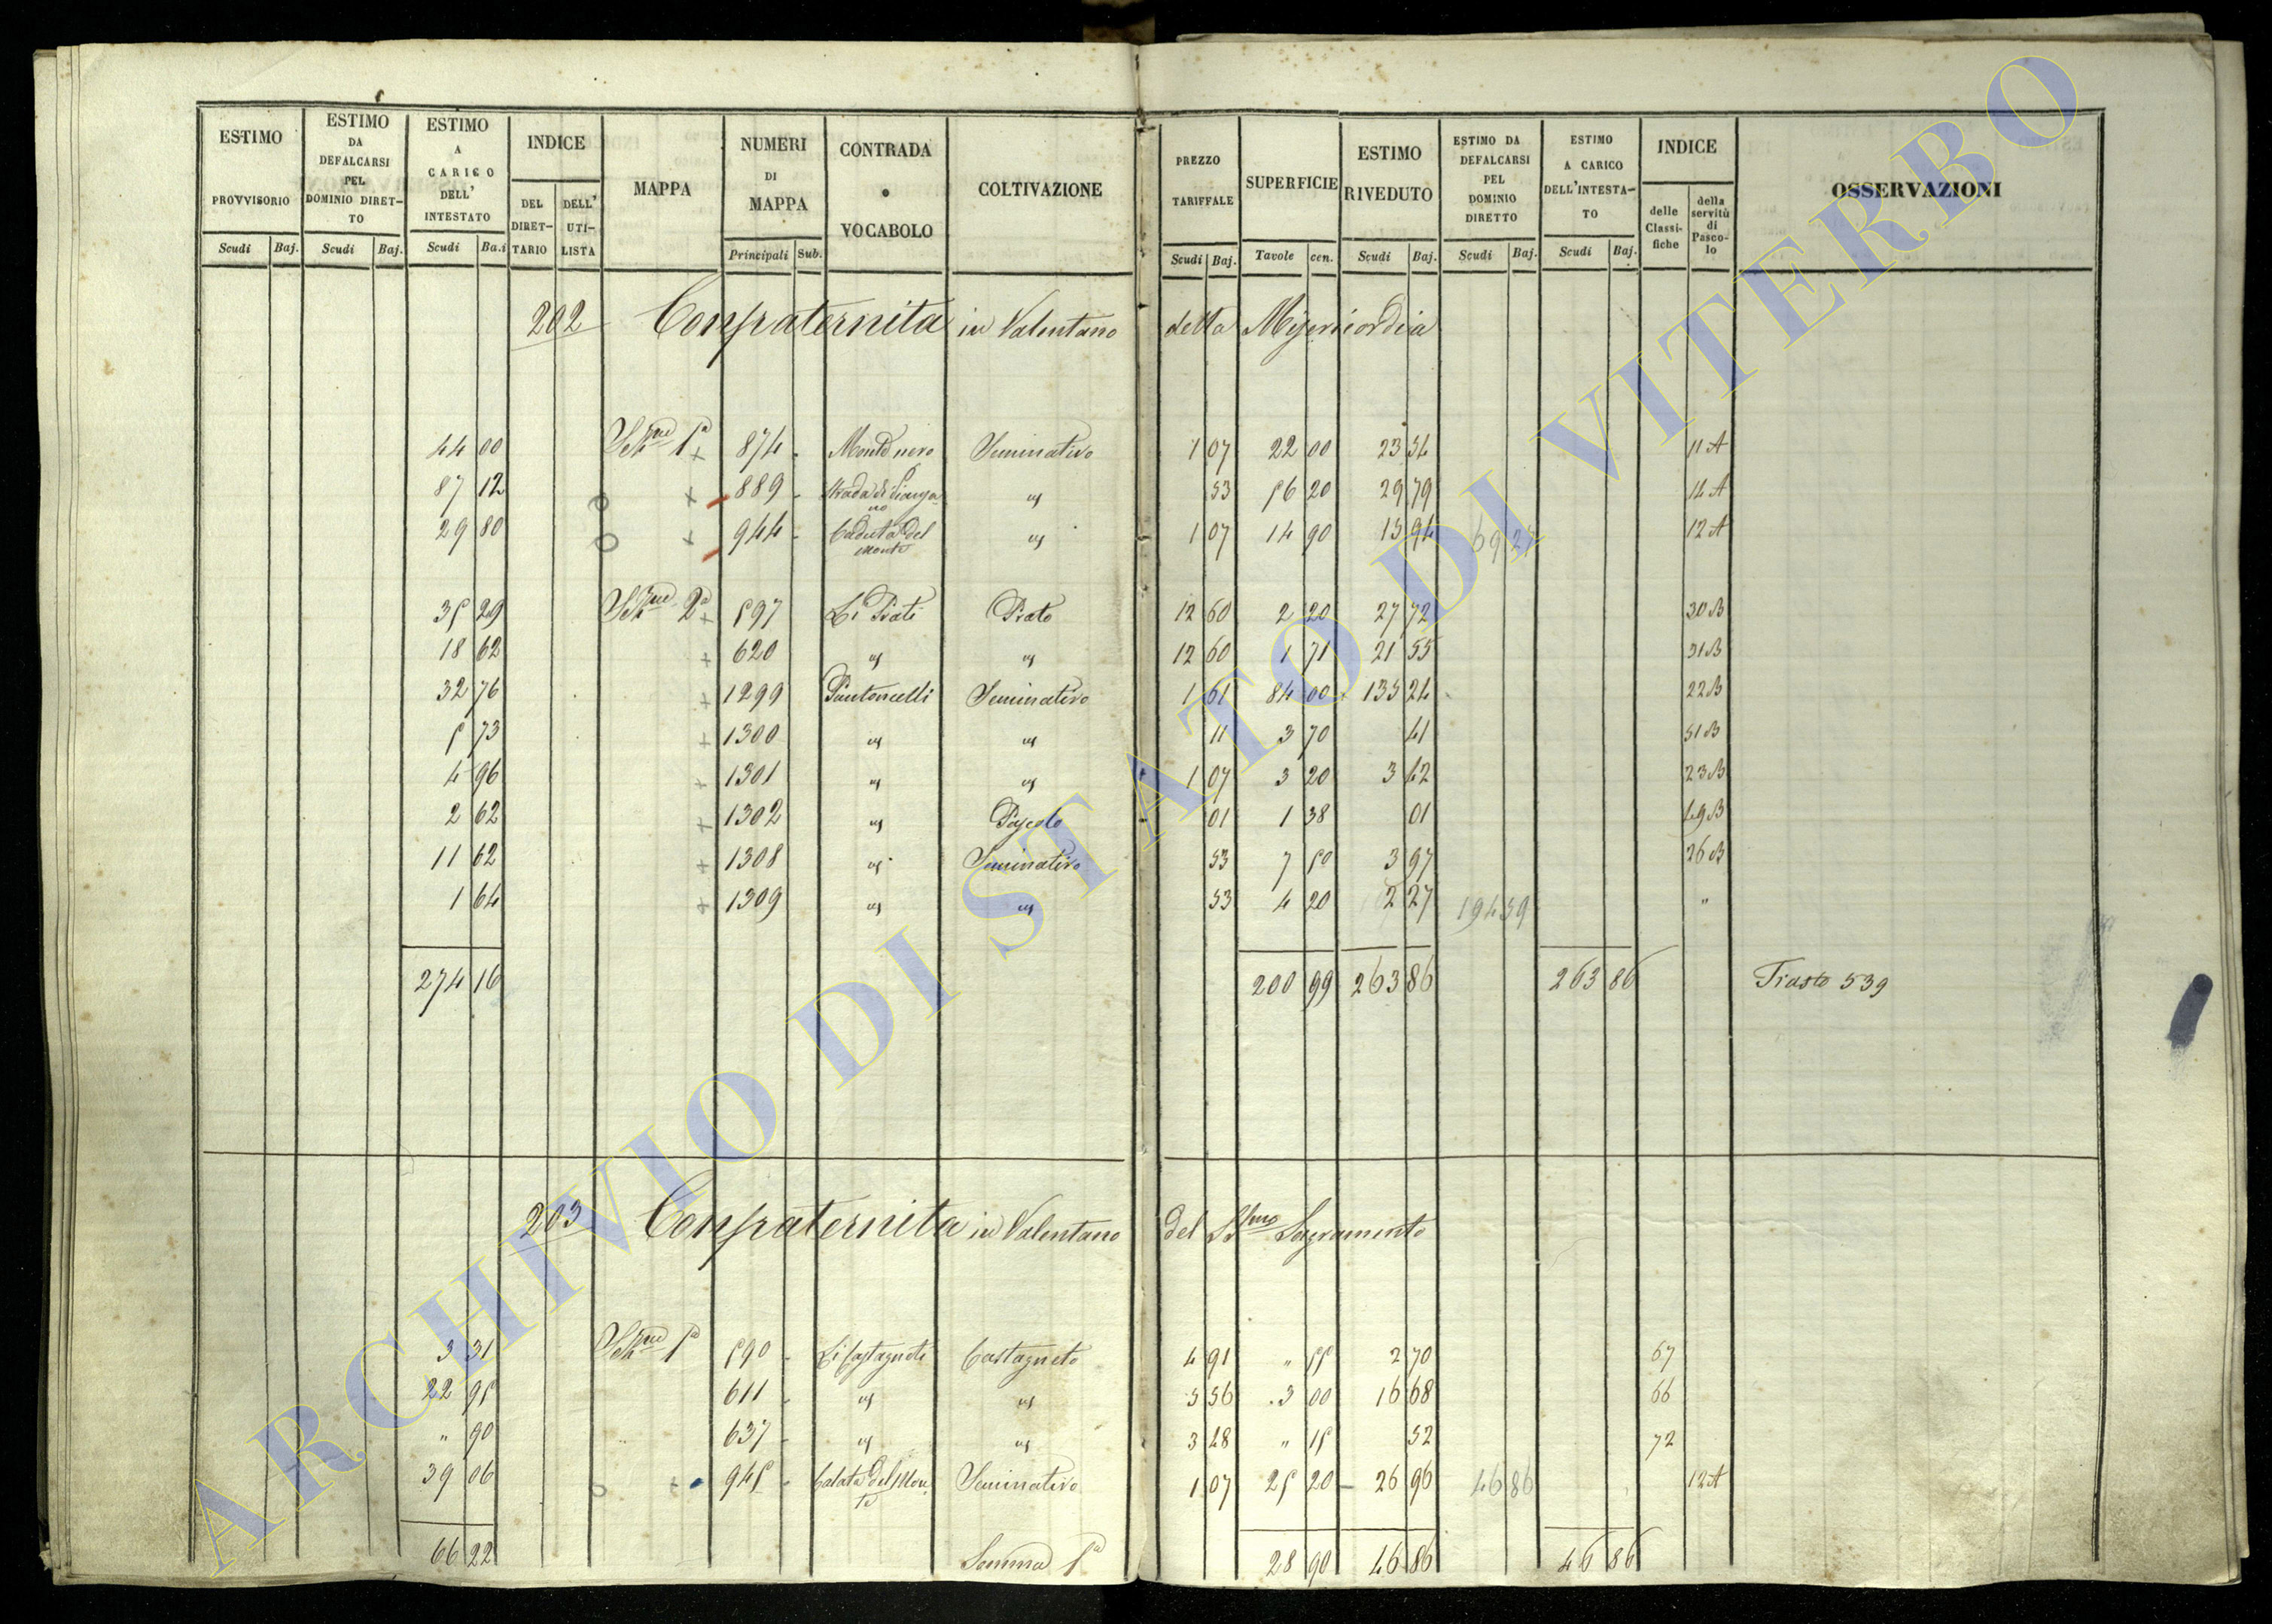 ESTIMO PROVVISORIO Scudi Baj. ESTIMO DA DEFALCARSI PEL DOMINIO DIRETTO Scudi Baj. ESTIMO A CARICO DELL' INTESTATO Scudi Ba.i INDICE DEL DIRETTARIO DELL' UTILISTA MAPPA NUMERI DI MAPPA Principali Sub. CONTRADA o VOCABOLO COLTIVAZIONE PREZZO TARIFFALE Scudi Baj. SUPERFICIE Tavole cen. ESTIMO RIVEDUTO Scudi Baj. ESTIMO DA DEFALCARSI PEL DOMINIO DIRETTO Scudi Baj. ESTIMO A CARICO DELL'INTESTATO Scudi Baj. INDICE delle Classifiche della servitù di Pascolo OSSERVAZIONI
202 Confraternita in Valentano della Misericordia
44 00 Sezne 1a 874 Monte nero Seminativo 1 07 22 00 23 54 11 A
87 12 889 Strada di 53 56 20 29 79 14 A
29 80 944 Caduta del Monte 1 07 14 90 15 94 69 27 12 A
35 29 Sezne 2a 597 Li Prati Prato 12 60 2 20 27 72 30 B
18 62 620 12 60 1 71 21 55 31 B
32 76 1299 Pantoncelli Seminativo 1 61 84 00 135 24 22 B
5 73 1300 11 3 70 41 51 B
4 96 1301 1 07 3 20 3 42 23 B
2 62 1302 Pascolo 01 1 38 01 49 B
11 62 1308 Seminativo 53 7 50 3 97 26 B
1 64 1309 53 4 20 2 27 194 59 "
274 16 200 99 263 86 263 86 Trasto 539
203 Confraternita in Valentano del SSmo Sagramento
3 31 Sezne 1a 590 Li Castagneti Castagneto 4 91 " 55 2 70 67
22 95 611 5 56 3 00 16 68 66
" 90 637 3 48 " 15 52 72
39 06 945 Calata del Monte Seminativo 1 07 25 20 26 96 46 86 12 A
66 22 Somma 1a 28 90 46 86 46 86
ARCHIVIO DI STATO DI VITERBO